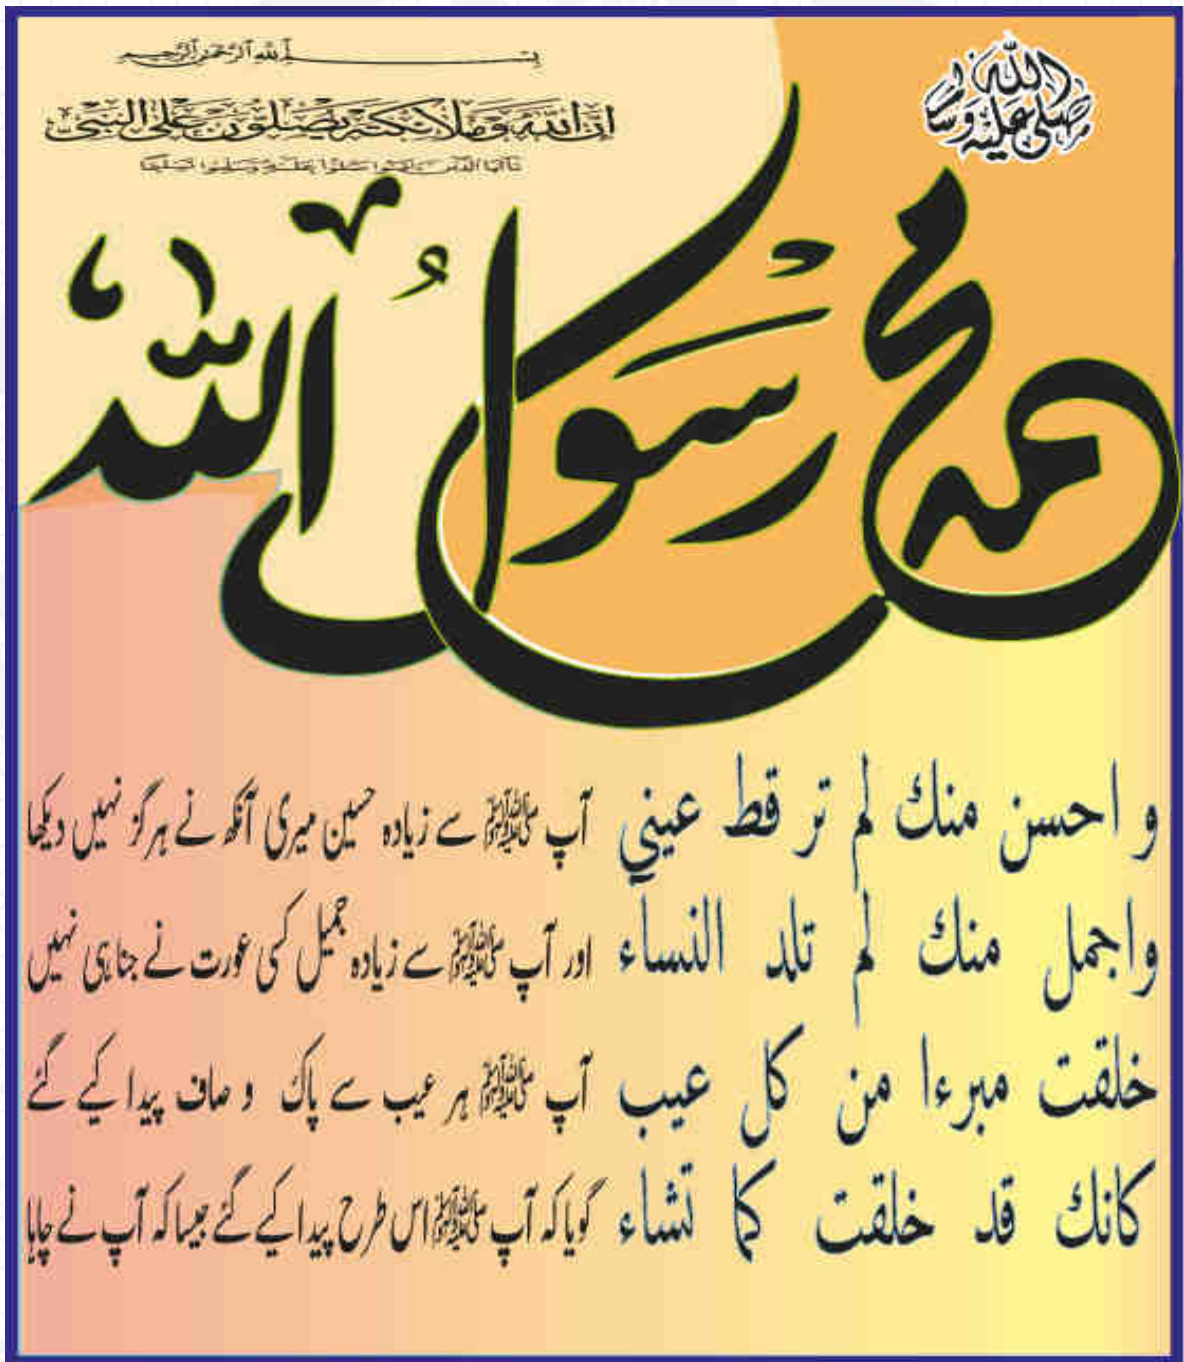 بسم الله الرحمن الرحيم
ان الله وملائكته يصلون على النبى
يأيها الذين ءامنوا صلوا عليه وسلموا تسليما
صلى الله عليه وسلم
محمد رسول الله
و احسن منك لم تر قط عيني آپ ﷺ سے زیادہ حسین میری آنکھ نے ہرگز نہیں دیکھا
واجمل منك لم تلد النسآء اور آپ ﷺ سے زیادہ جمیل کسی عورت نے جنا ہی نہیں
خلقت مبرءا من كل عيب آپ ﷺ ہر عیب سے پاک و صاف پیدا کیے گئے
كانك قد خلقت كما تشاء گویا کہ آپ ﷺ اس طرح پیدا کیے گئے جیسا کہ آپ نے چاہا